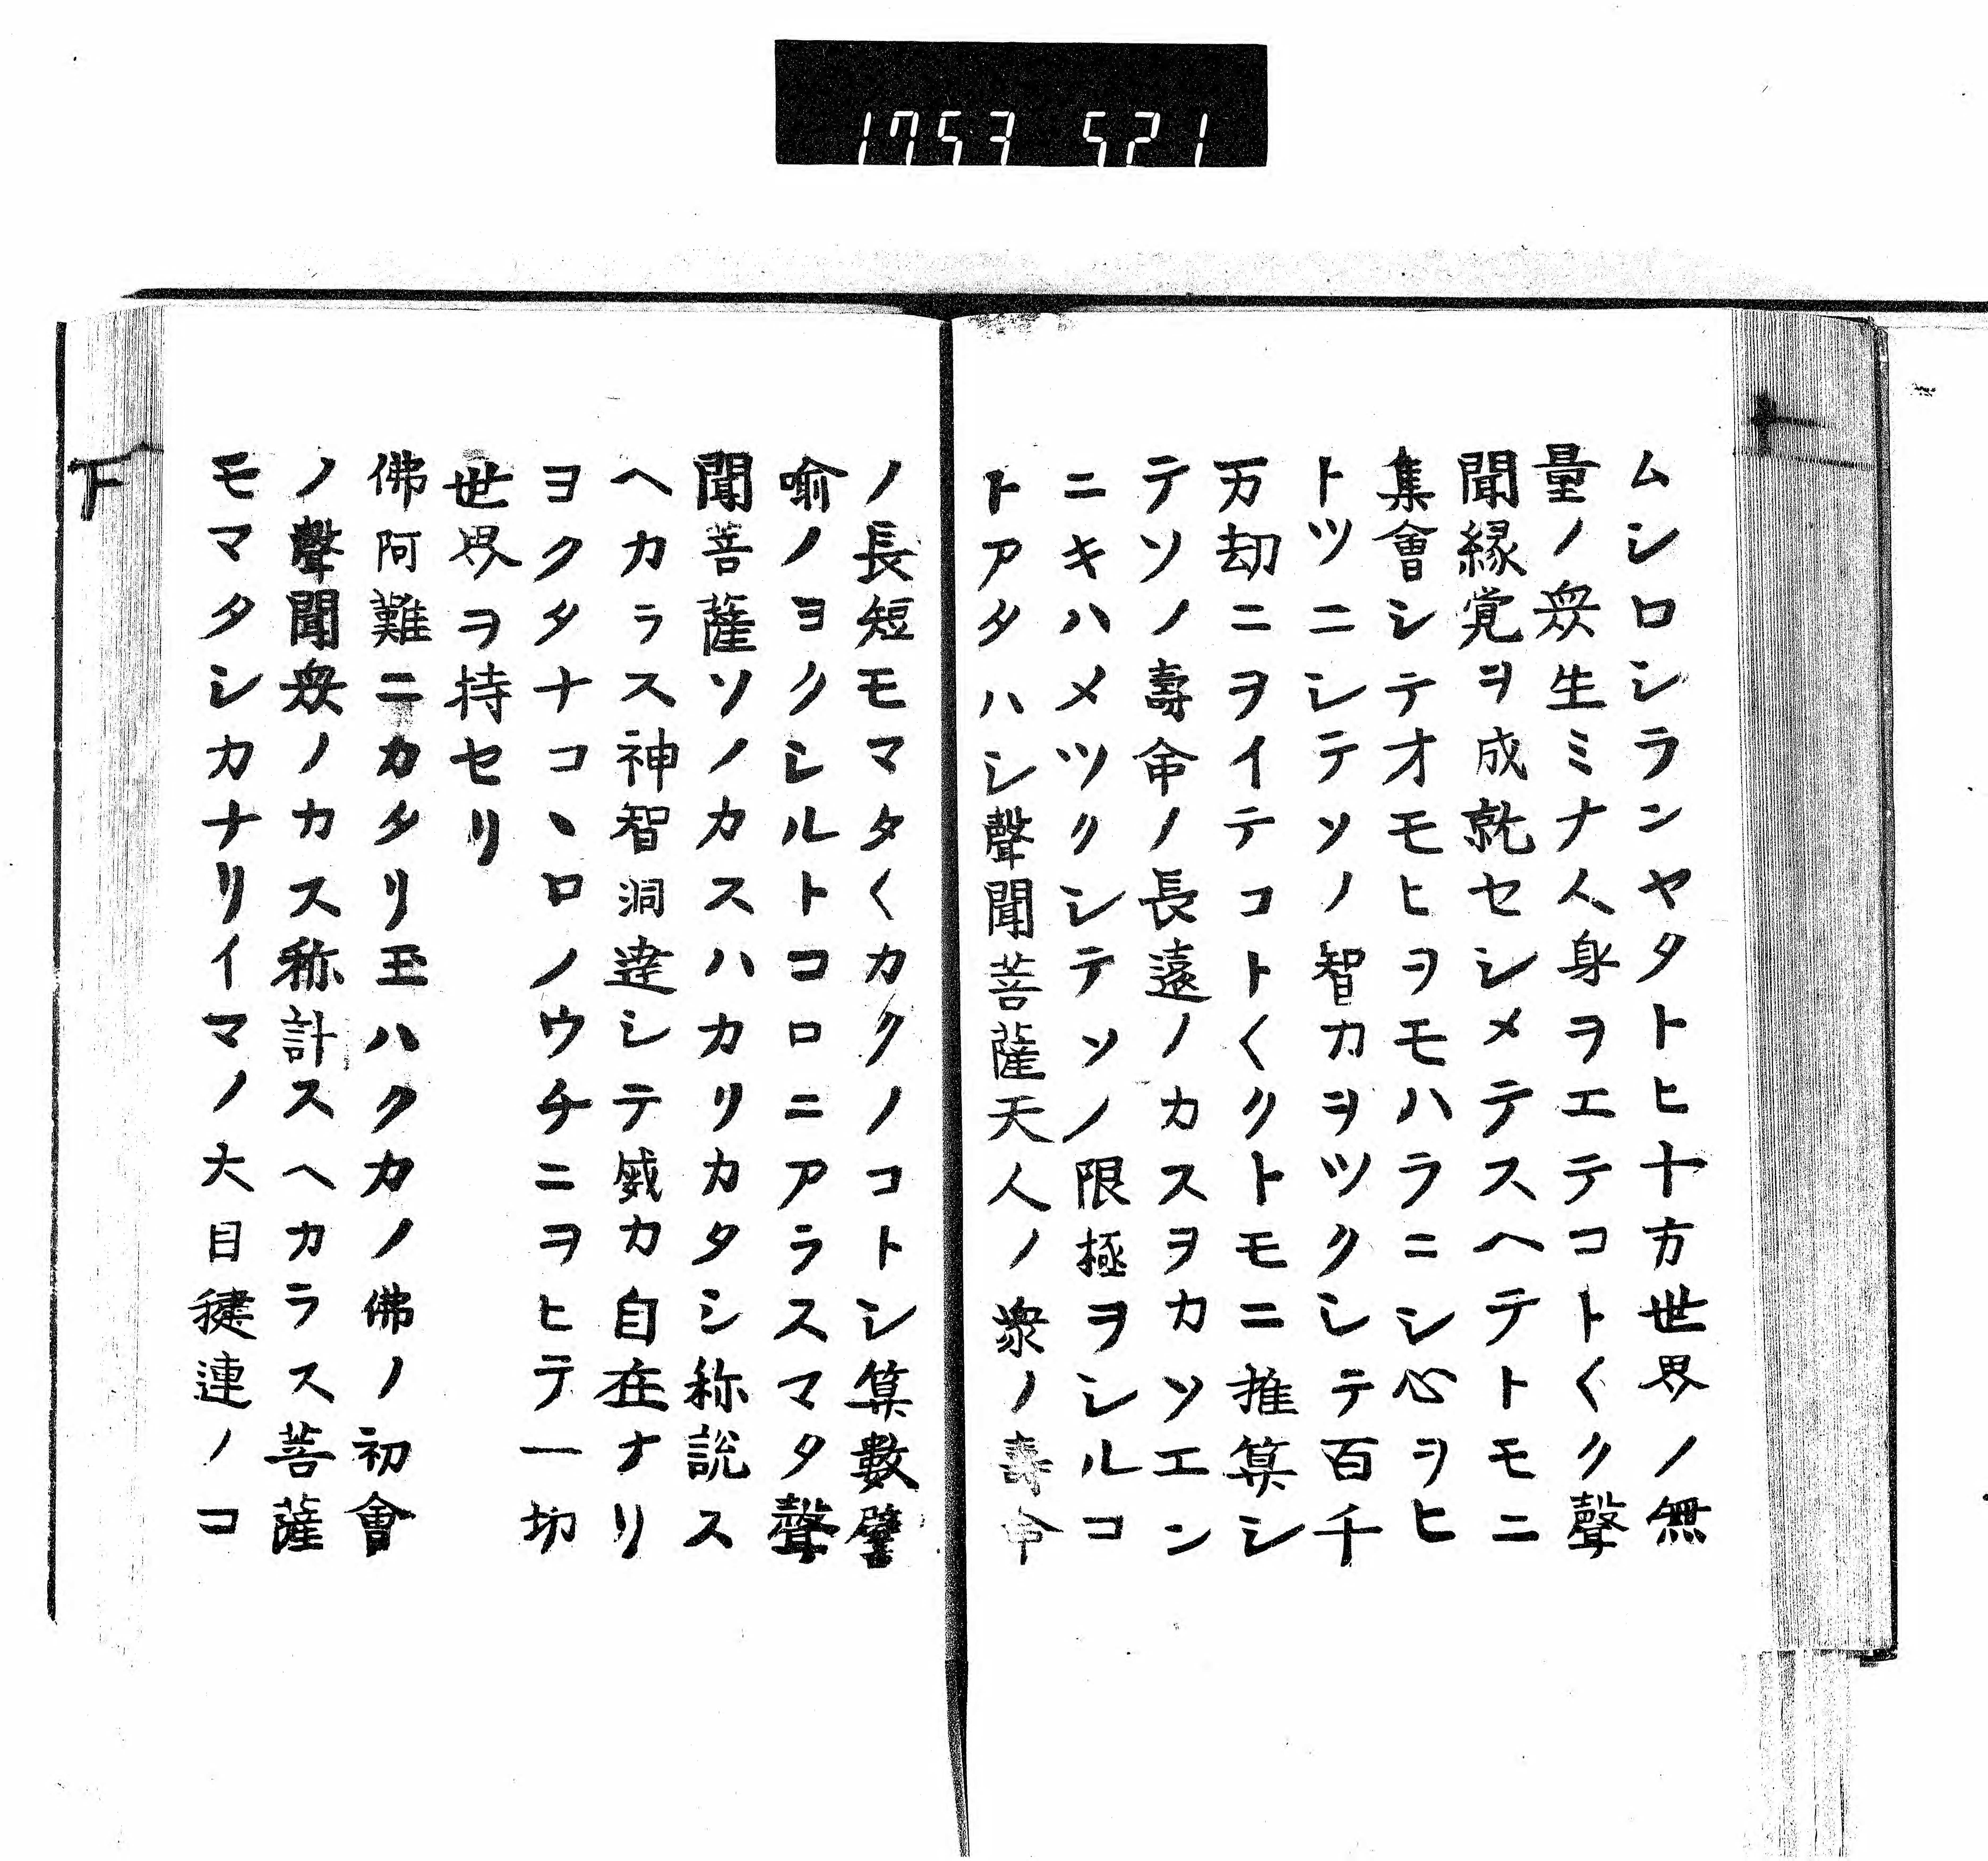 1753 521
ムシロシランヤタトヒ十方世界ノ無
量ノ衆生ミナ人身ヲエテコト〱ク聲
聞縁覚ヲ成就セシメテスヘテトモニ
集會シテオモヒヲモハラニシ心ヲヒ
トツニシテソノ智力ヲツクシテ百千
万劫ニヲイテコト〱クトモニ推算シ
テソノ壽命ノ長遠ノカスヲカソエン
ニキハメツクシテソノ限極ヲシルコ
トアタハシ聲聞菩薩天人ノ衆ノ壽命
ノ長短モマタ〱カクノコトシ算數譬
喩ノヨクシルトコロニアラスマタ聲
聞菩薩ソノカスハカリカタシ称説ス
ヘカラス神智洞達シテ威力自在ナリ
ヨクタナコヽロノウチニヲヒテ一切
世界ヲ持セリ
佛阿難ニカタリ玉ハクカノ佛ノ初會
ノ聲聞衆ノカス称計スヘカラス菩薩
モマタシカナリイマノ大目犍連ノコ
下